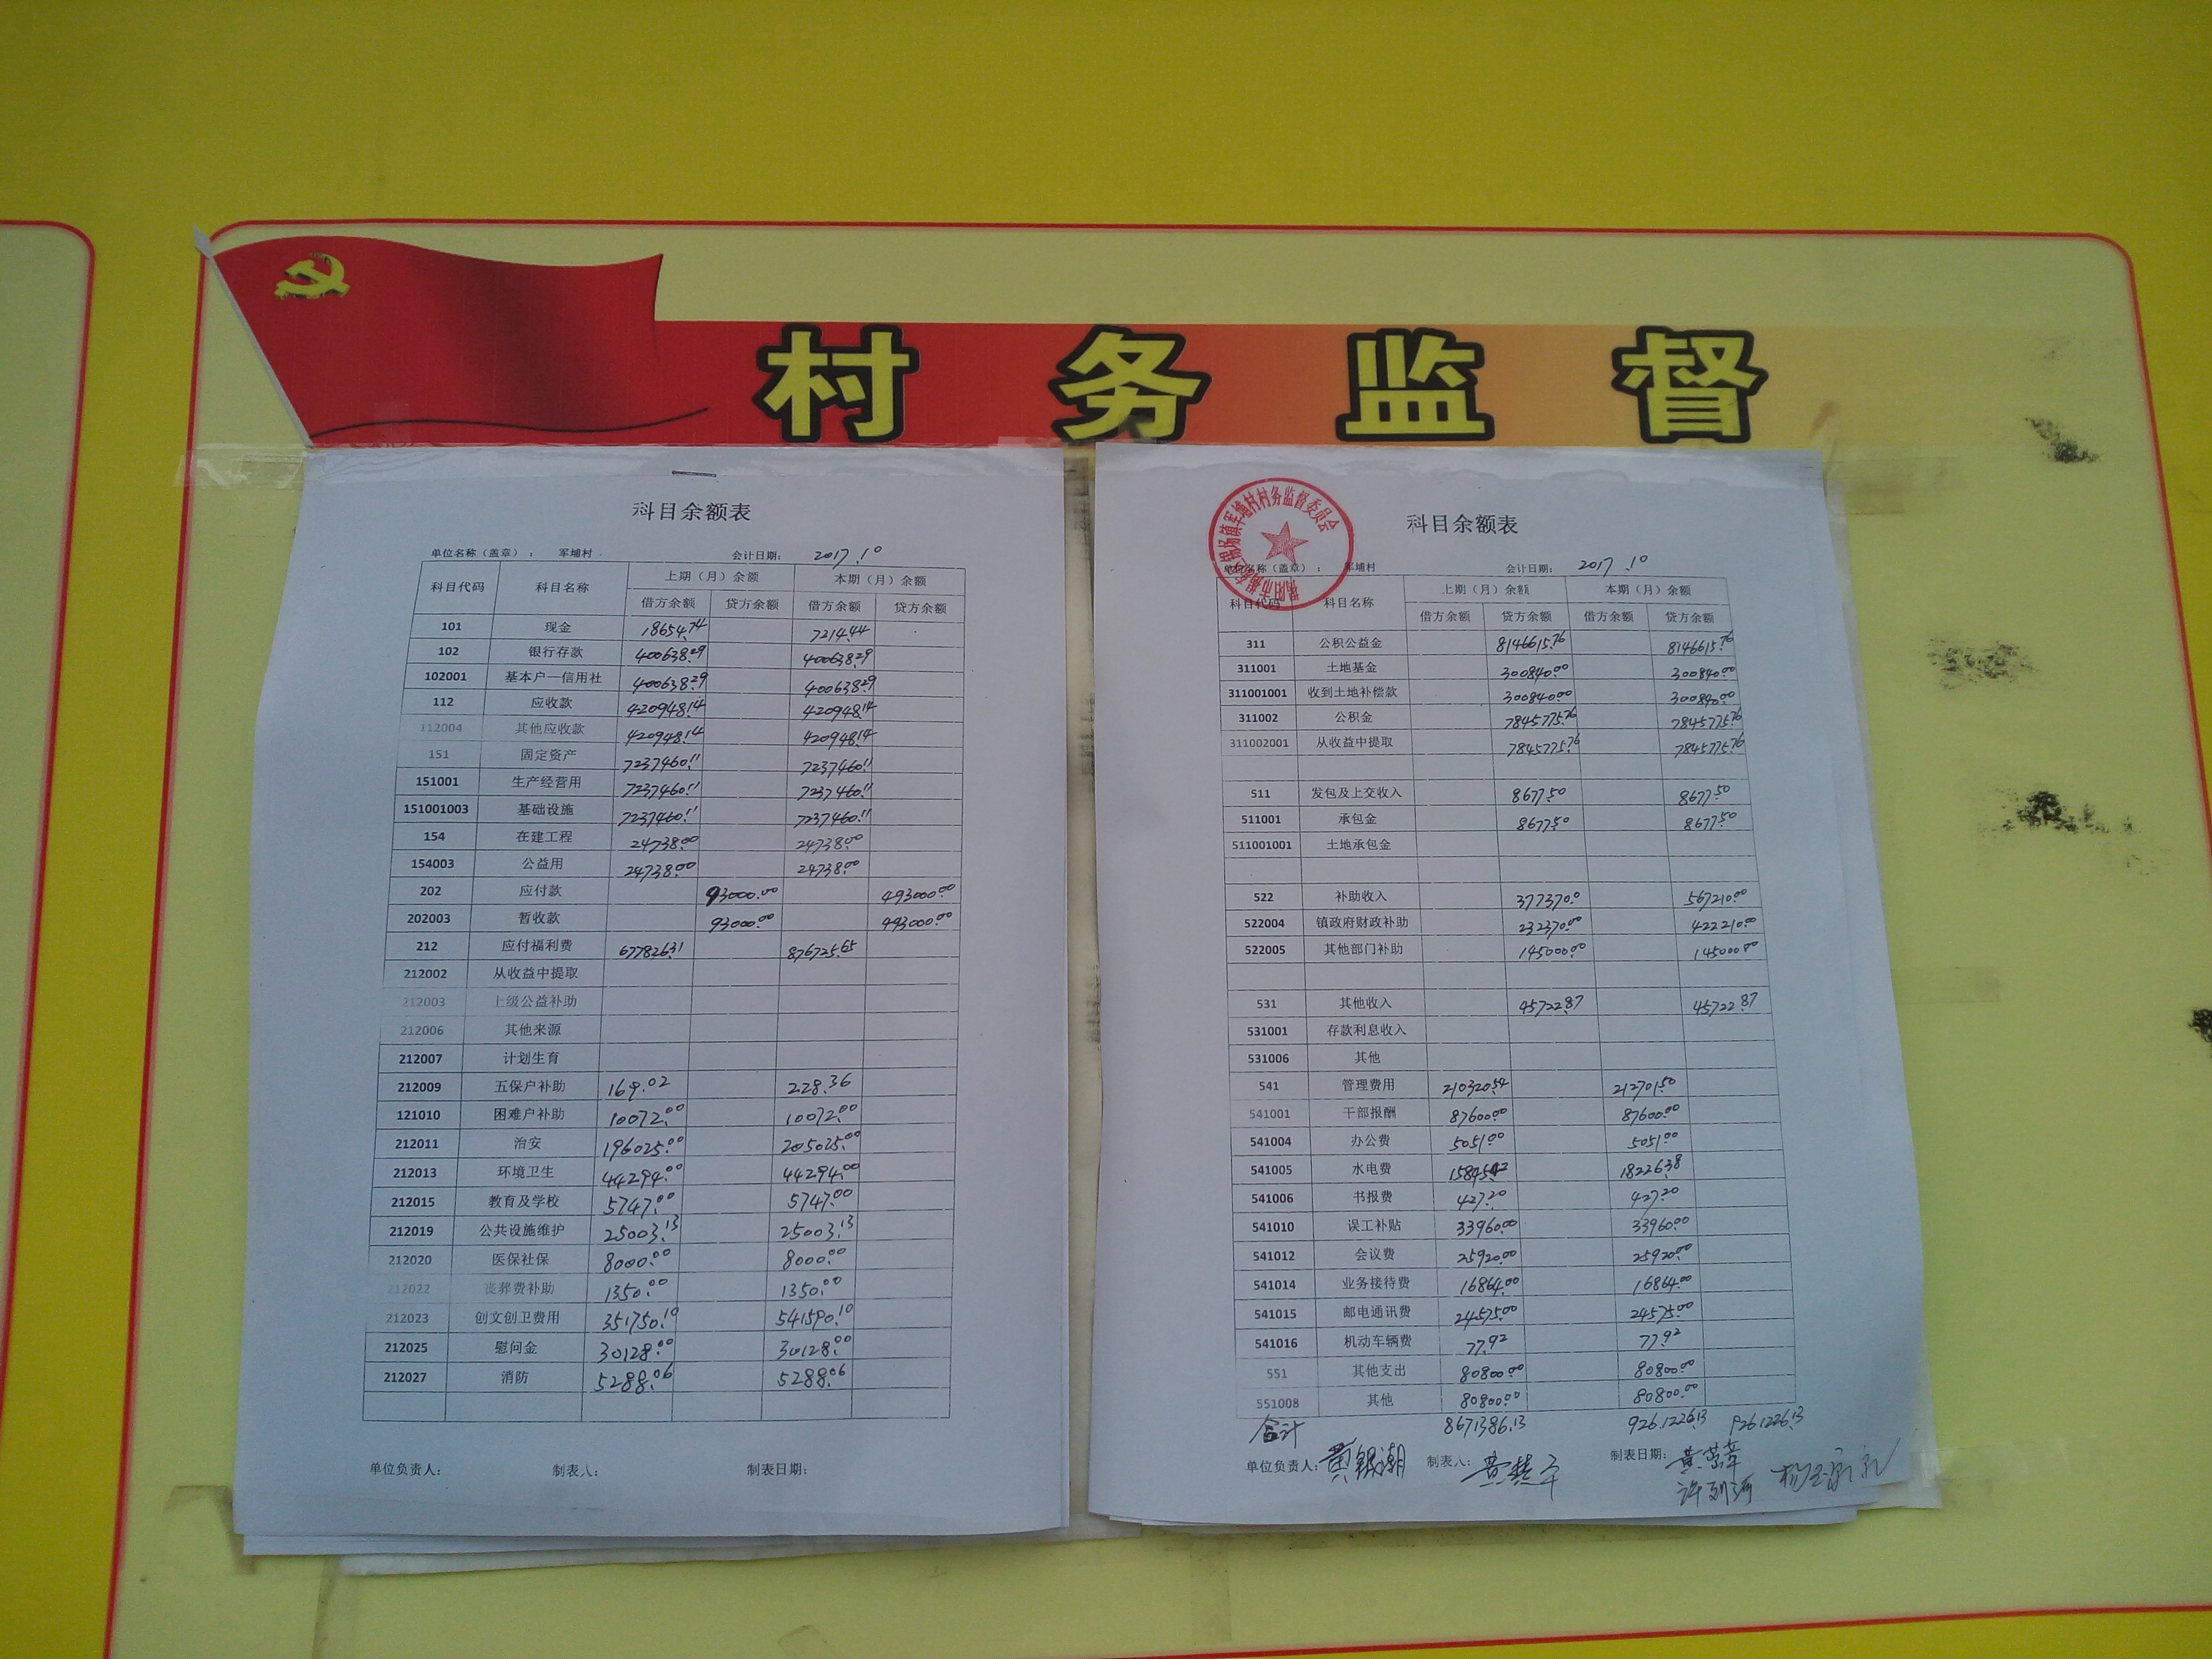 村务监督
科目余额表
单位名称（盖章）： 军埔村 会计日期： 2017.10
科目代码 科目名称 上期（月）余额 本期（月）余额
借方余额 贷方余额 借方余额 贷方余额
101 现金 18654.74 7214.44
102 银行存款 400638.29 400638.29
102001 基本户一信用社 400638.29 400638.29
112 应收款 420948.14 420948.14
112004 其他应收款 420948.14 420948.14
151 固定资产 7237460.11 7237460.11
151001 生产经营用 7237460.11 7237460.11
151001003 基础设施 7237460.11 7237460.11
154 在建工程 24738.00 24738.00
154003 公益用 24738.00 24738.00
202 应付款 93000.00 493000.00
202003 暂收款 93000.00 493000.00
212 应付福利费 677826.31 876725.65
212002 从收益中提取
212003 上级公益补助
212006 其他来源
212007 计划生育
212009 五保户补助 169.02 228.36
121010 困难户补助 10072.00 10072.00
212011 治安 196025.00 205025.00
212013 环境卫生 44294.00 44294.00
212015 教育及学校 5747.00 5747.00
212019 公共设施维护 25003.13 25003.13
212020 医保社保 8000.00 8000.00
212022 丧葬费补助 1350.00 1350.00
212023 创文创卫费用 351750.10 541590.10
212025 慰问金 30128.00 30128.00
212027 消防 5288.06 5288.06
单位负责人： 制表人： 制表日期：
科目余额表
单位名称（盖章）： 军埔村 会计日期： 2017.10
科目代码 科目名称 上期（月）余额 本期（月）余额
借方余额 贷方余额 借方余额 贷方余额
311 公积公益金 8146615.76 8146615.76
311001 土地基金 300840.00 300840.00
311001001 收到土地补偿款 300840.00 300840.00
311002 公积金 7845775.76 7845775.76
311002001 从收益中提取 7845775.76 7845775.76
511 发包及上交收入 8677.50 8677.50
511001 承包金 8677.50 8677.50
511001001 土地承包金
522 补助收入 377370.0 567210.00
522004 镇政府财政补助 232370.00 422210.00
522005 其他部门补助 145000.00 145000.00
531 其他收入 45722.87 45722.87
531001 存款利息收入
531006 其他
541 管理费用 210320.54 212701.50
541001 干部报酬 87600.00 87600.00
541004 办公费 5051.00 5051.00
541005 水电费 18226.38
541006 书报费 427.20 427.20
541010 误工补贴 33960.00 33960.00
541012 会议费 25920.00 25920.00
541014 业务接待费 16864.00 16864.00
541015 邮电通讯费 24575.00 24575.00
541016 机动车辆费 77.92 77.92
551 其他支出 80800.00 80800.00
551008 其他 80800.00 80800.00
合计 8671386.13 9261226.13 9261226.13
单位负责人： 黄银潮 制表人： 制表日期：